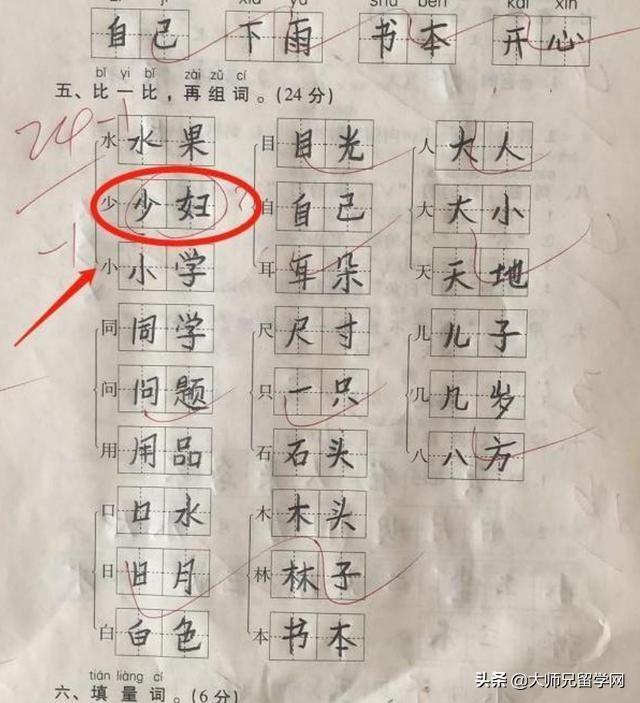 自己 下雨 书本 开心
bǐ yi bǐ zài zǔ cí
五、比一比，再组词。(24分)
24-1
水 水果 目 目光 人 大人
少 少妇 自 自己 大 大小
-1
小 小学 耳 耳朵 天 天地
同 同学 尺 尺寸 儿 儿子
问 问题 只 一只 几 几岁
用 用品 石 石头 八 八方
口 口水 木 木头
日 日月 林 林子
白 白色 本 书本
tián liàng cí
六、填量词。(6分)
头条 @大师兄留学网